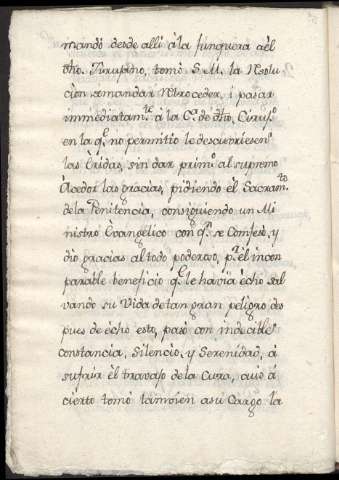 mandò desde alli à la Junquera a èl
dho. Zirujano, tomò S. M. la resolu
cion amandar retroceder, i pasar
immediatamte. à la Cª. de dho, Ciruxº.
en la ql. no permitiò le descubriesen
las Eridas, sin dar primº. al supremo
Acedor las gracias, pidiendo èl Sacramto.
de la Penitencia, consiguiendo un Mi
nistro Èvangelico con qn. se Comfesò, y
diò gracias al todo poderoso, pr. èl incon
parable beneficio ql. le havia èchò sal
vando su Vida de tan gran peligro des
pues de èchò esto, pasò con indecible
constancia, Silencio, y Serenidad, à
sufrir èl travajo de la Cura, cuio à
cierto tomò tamvien a su Cargo la